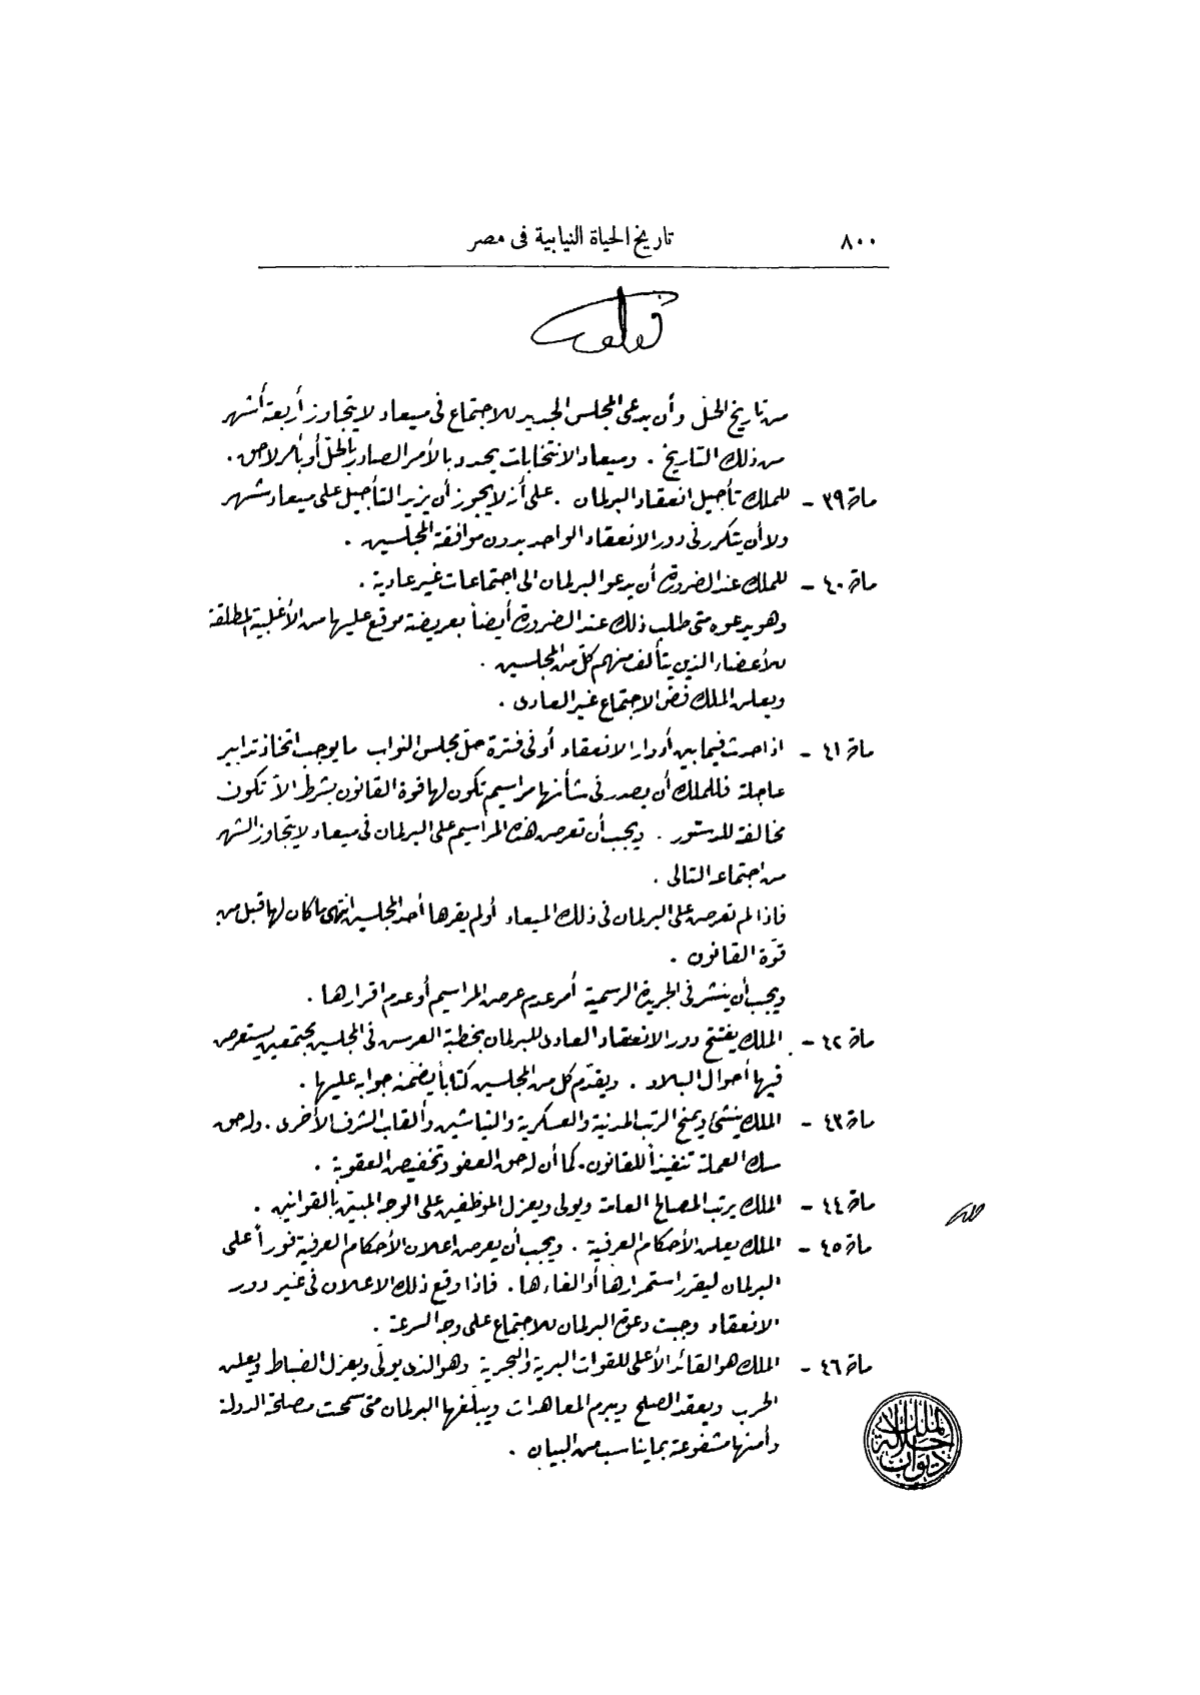 ٨٠٠
تاريخ الحياة النيابية فى مصر
من تاريخ الحلّ وأن يدعى المجلس الجديد للاجتماع فى ميعاد لا يتجاوز أربعة أشهر
من ذلك التاريخ . وميعاد الانتخابات يحدد بالأمر الصادر بالحلّ أو بأمر لاحق .
مادة ٣٩ - للملك تأجيل انعقاد البرلمان . على أنه لا يجوز أن يزيد التأجيل على ميعاد شهر
ولا أن يتكرر فى دور الانعقاد الواحد بدون موافقة المجلسين .
مادة ٤٠ - للملك عند الضرورة أن يدعو البرلمان الى اجتماعات غير عادية .
وهو يدعوه متى طلب ذلك عند الضرورة أيضاً بعريضة موقع عليها من الأغلبية المطلقة
للأعضاء الذين يتألف منهم كلّ من المجلسين .
ويعلن الملك فض الاجتماع غير العادى .
مادة ٤١ - اذا حدث فيما بين أدوار الانعقاد أو فى فترة حلّ مجلس النواب ما يوجب اتخاذ تدابير
عاجلة فللملك أن يصدر فى شأنها مراسيم تكون لها قوة القانون بشرط ألاّ تكون
مخالفة للدستور . ويجب أن تعرض هذه المراسيم على البرلمان فى ميعاد لا يتجاوز الشهر
من اجتماعه التالى .
فاذا لم تعرض على البرلمان فى ذلك الميعاد أو لم يقرها أحد المجلسين انتهى ما كان لها قبل من
قوّة القانون .
ويجب أن ينشر فى الجريدة الرسمية أمر عدم عرض المراسيم أو عدم اقرارها .
مادة ٤٢ - الملك يفتتح دور الانعقاد العادى للبرلمان بخطبة العرس فى المجلسين مجتمعين يستعرض
فيها أحوال البلاد . ويقدّم كل من المجلسين كتاباً يضمّنه جوابه عليها .
مادة ٤٣ - الملك ينشئ ويمنح الرتب المدنية والعسكرية والنياشين وألقاب الشرف الأخرى . وله حق
سك العملة تنفيذاً للقانون . كما أن له حق العفو وتخفيض العقوبة .
مادة ٤٤ - الملك يرتب المصالح العامة ويولى ويعزل الموظفين على الوجه المبين بالقوانين .
مادة ٤٥ - الملك يعلن الأحكام العرفية . ويجب أن يعرض اعلان الأحكام العرفية فوراً على
البرلمان ليقرر استمرارها أو الغاءها . فاذا وقع ذلك الاعلان فى غير دور
الانعقاد وجبت دعوة البرلمان للاجتماع على وجه السرعة .
مادة ٤٦ - الملك هو القائد الأعلى للقوات البرية والبحرية وهو الذى يولّى ويعزل الضباط ويعلن
الحرب ويعقد الصلح ويبرم المعاهدات ويبلّغها البرلمان متى سمحت مصلحة الدولة
وأمنها مشفوعة بما يناسب من البيان .
ديوان جلالة الملك